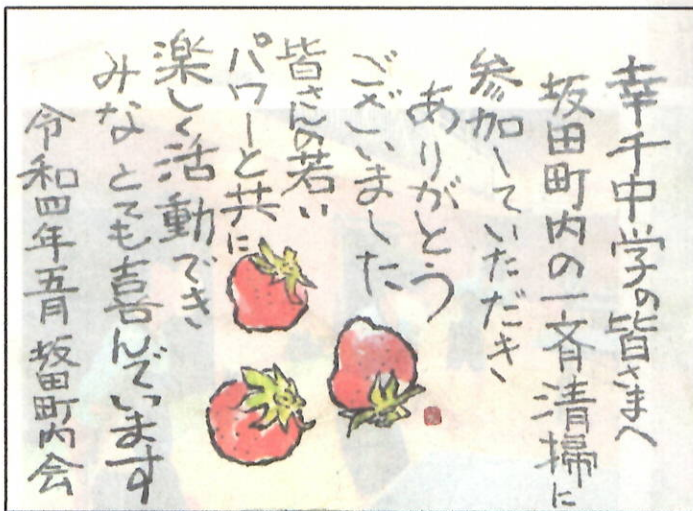 幸千中学の皆さまへ
坂田町内の一斉清掃に
参加していただき
ありがとう
ございました
皆さんの若い
パワーと共に
楽しく活動でき
みなとても喜んでいます
令和四年五月 坂田町内会